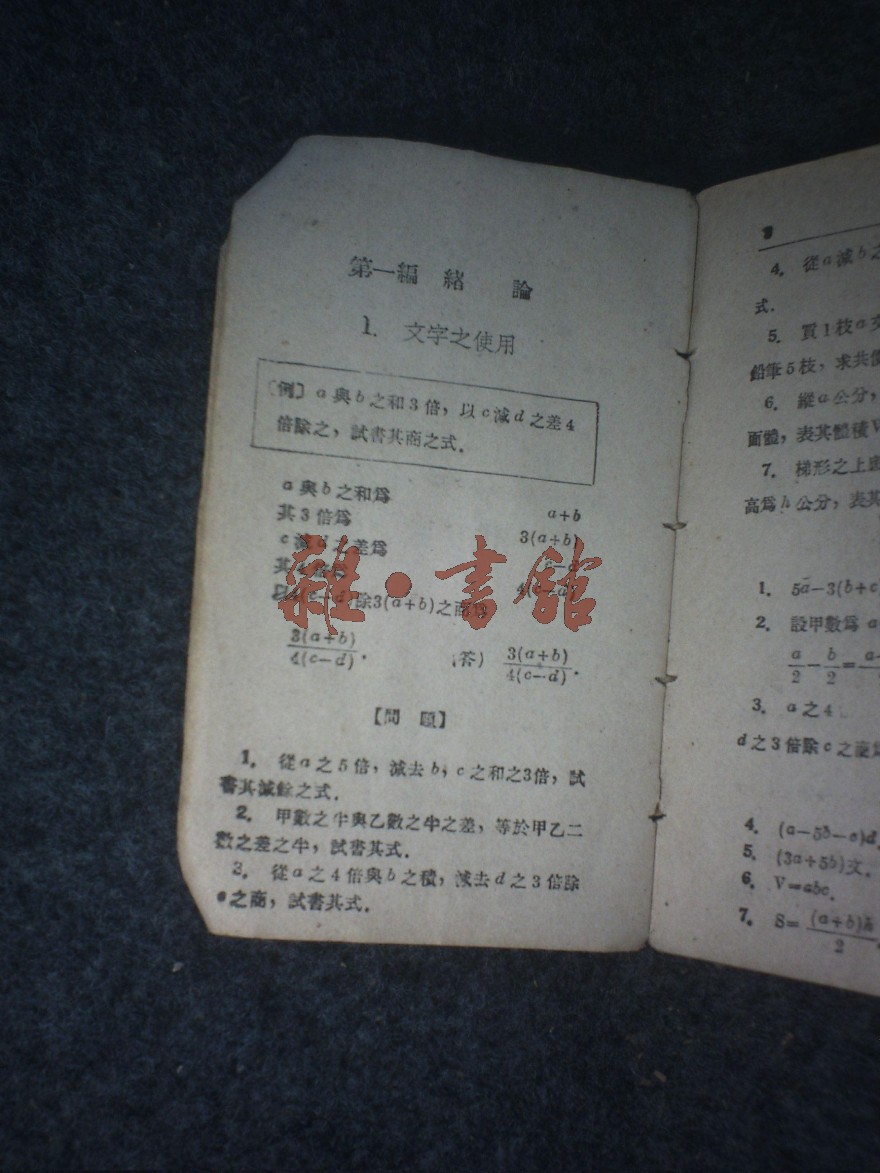 第一編 緒 論
1. 文字之使用
〔例〕a與b之和3倍，以c減d之差4
倍除之，試書其商之式．
a與b之和爲
a+b
其3倍爲
3(a+b)
c減d之差爲
c-d
其4倍爲
4(c-d)
以4(c-d)除3(a+b)之商爲
3(a+b)/4(c-d)．
(答) 3(a+b)/4(c-d)．
【問 題】
1. 從a之5倍，減去b，c之和之3倍，試
書其減餘之式．
2. 甲數之半與乙數之半之差，等於甲乙二
數之差之半，試書其式．
3. 從a之4倍與b之積，減去d之3倍除
c之商，試書其式．
雜·書館
4. 從a減b之
式．
5. 買1枝a文
鉛筆5枝，求共價
6. 縱a公分，
面體，表其體積V
7. 梯形之上底
高爲h公分，表其
1. 5a-3(b+c
2. 設甲數爲a
a/2-b/2=a-
3. a之4
d之3倍除c之商爲
4. (a-5b-c)d
5. (3a+5b)文．
6. V=abc．
7. S=(a+b)h/2．